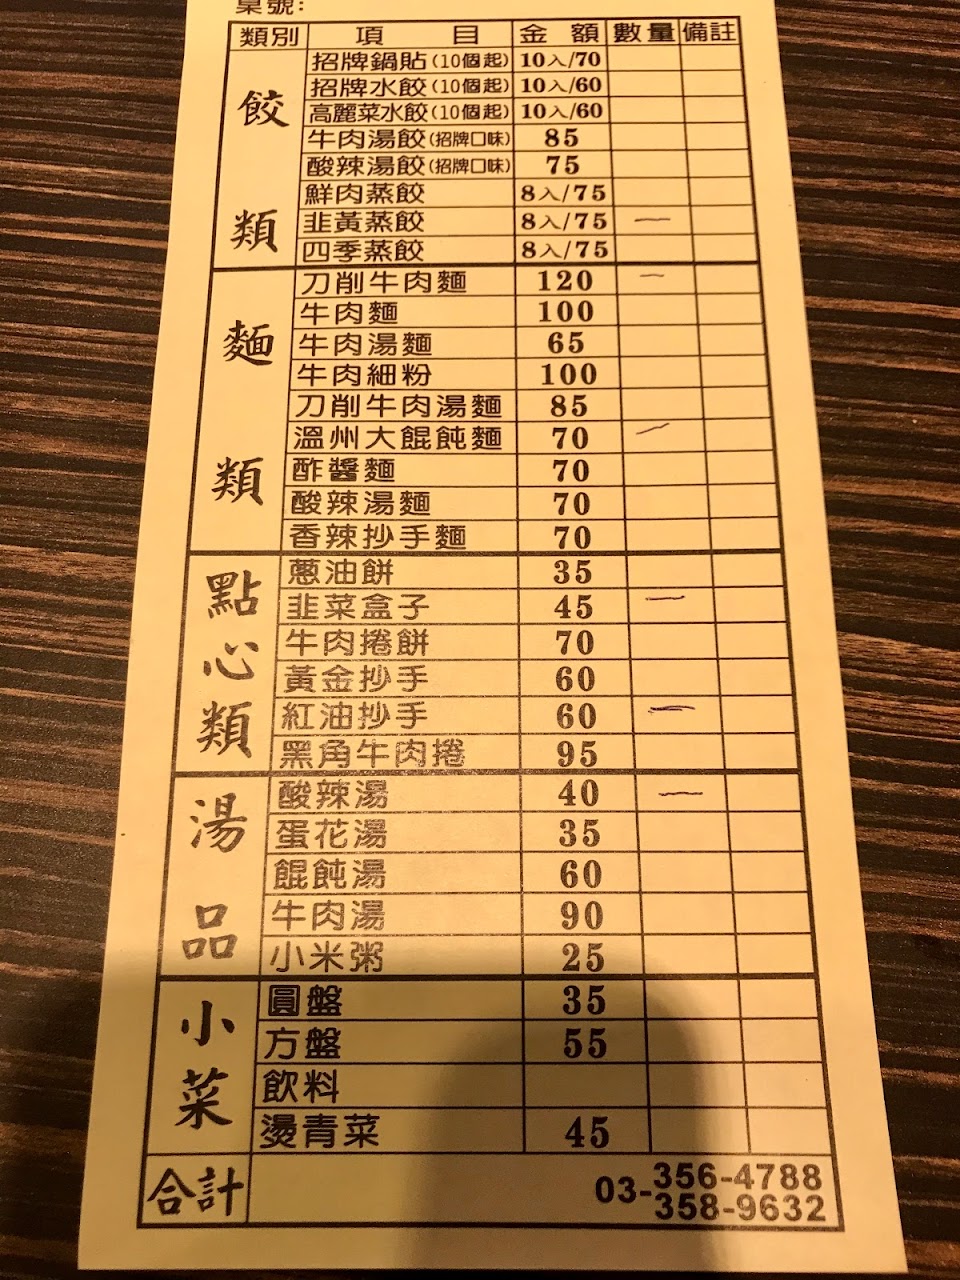 桌號:
類別 項目 金額 數量 備註
餃類
招牌鍋貼(10個起) 10入/70
招牌水餃(10個起) 10入/60
高麗菜水餃(10個起) 10入/60
牛肉湯餃(招牌口味) 85
酸辣湯餃(招牌口味) 75
鮮肉蒸餃 8入/75
韭黃蒸餃 8入/75 一
四季蒸餃 8入/75
麵類
刀削牛肉麵 120 一
牛肉麵 100
牛肉湯麵 65
牛肉細粉 100
刀削牛肉湯麵 85
溫州大餛飩麵 70 一
酢醬麵 70
酸辣湯麵 70
香辣抄手麵 70
點心類
蔥油餅 35
韭菜盒子 45 一
牛肉捲餅 70
黃金抄手 60
紅油抄手 60 一
黑角牛肉捲 95
湯品
酸辣湯 40 一
蛋花湯 35
餛飩湯 60
牛肉湯 90
小米粥 25
小菜
圓盤 35
方盤 55
飲料
燙青菜 45
合計 03-356-4788
358-9632